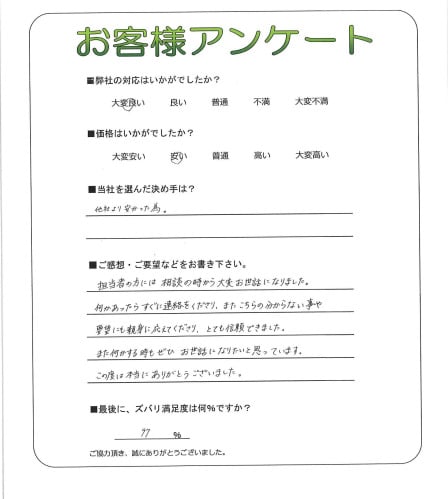 お客様アンケート
■弊社の対応はいかがでしたか?
大変良い 良い 普通 不満 大変不満
■価格はいかがでしたか?
大変安い 安い 普通 高い 大変高い
■当社を選んだ決め手は?
他社より安かった為。
■ご感想・ご要望などをお書き下さい。
担当者の方には相談の時から大変お世話になりました。
何かあったらすぐに連絡をくださり、またこちらの分からない事や
要望にも親身に応えてくださり、とても信頼できました。
また何かする時もぜひ お世話になりたいと思っています。
この度は本当にありがとうございました。
■最後に、ズバリ満足度は何%ですか?
97 %
ご協力頂き、誠にありがとうございました。